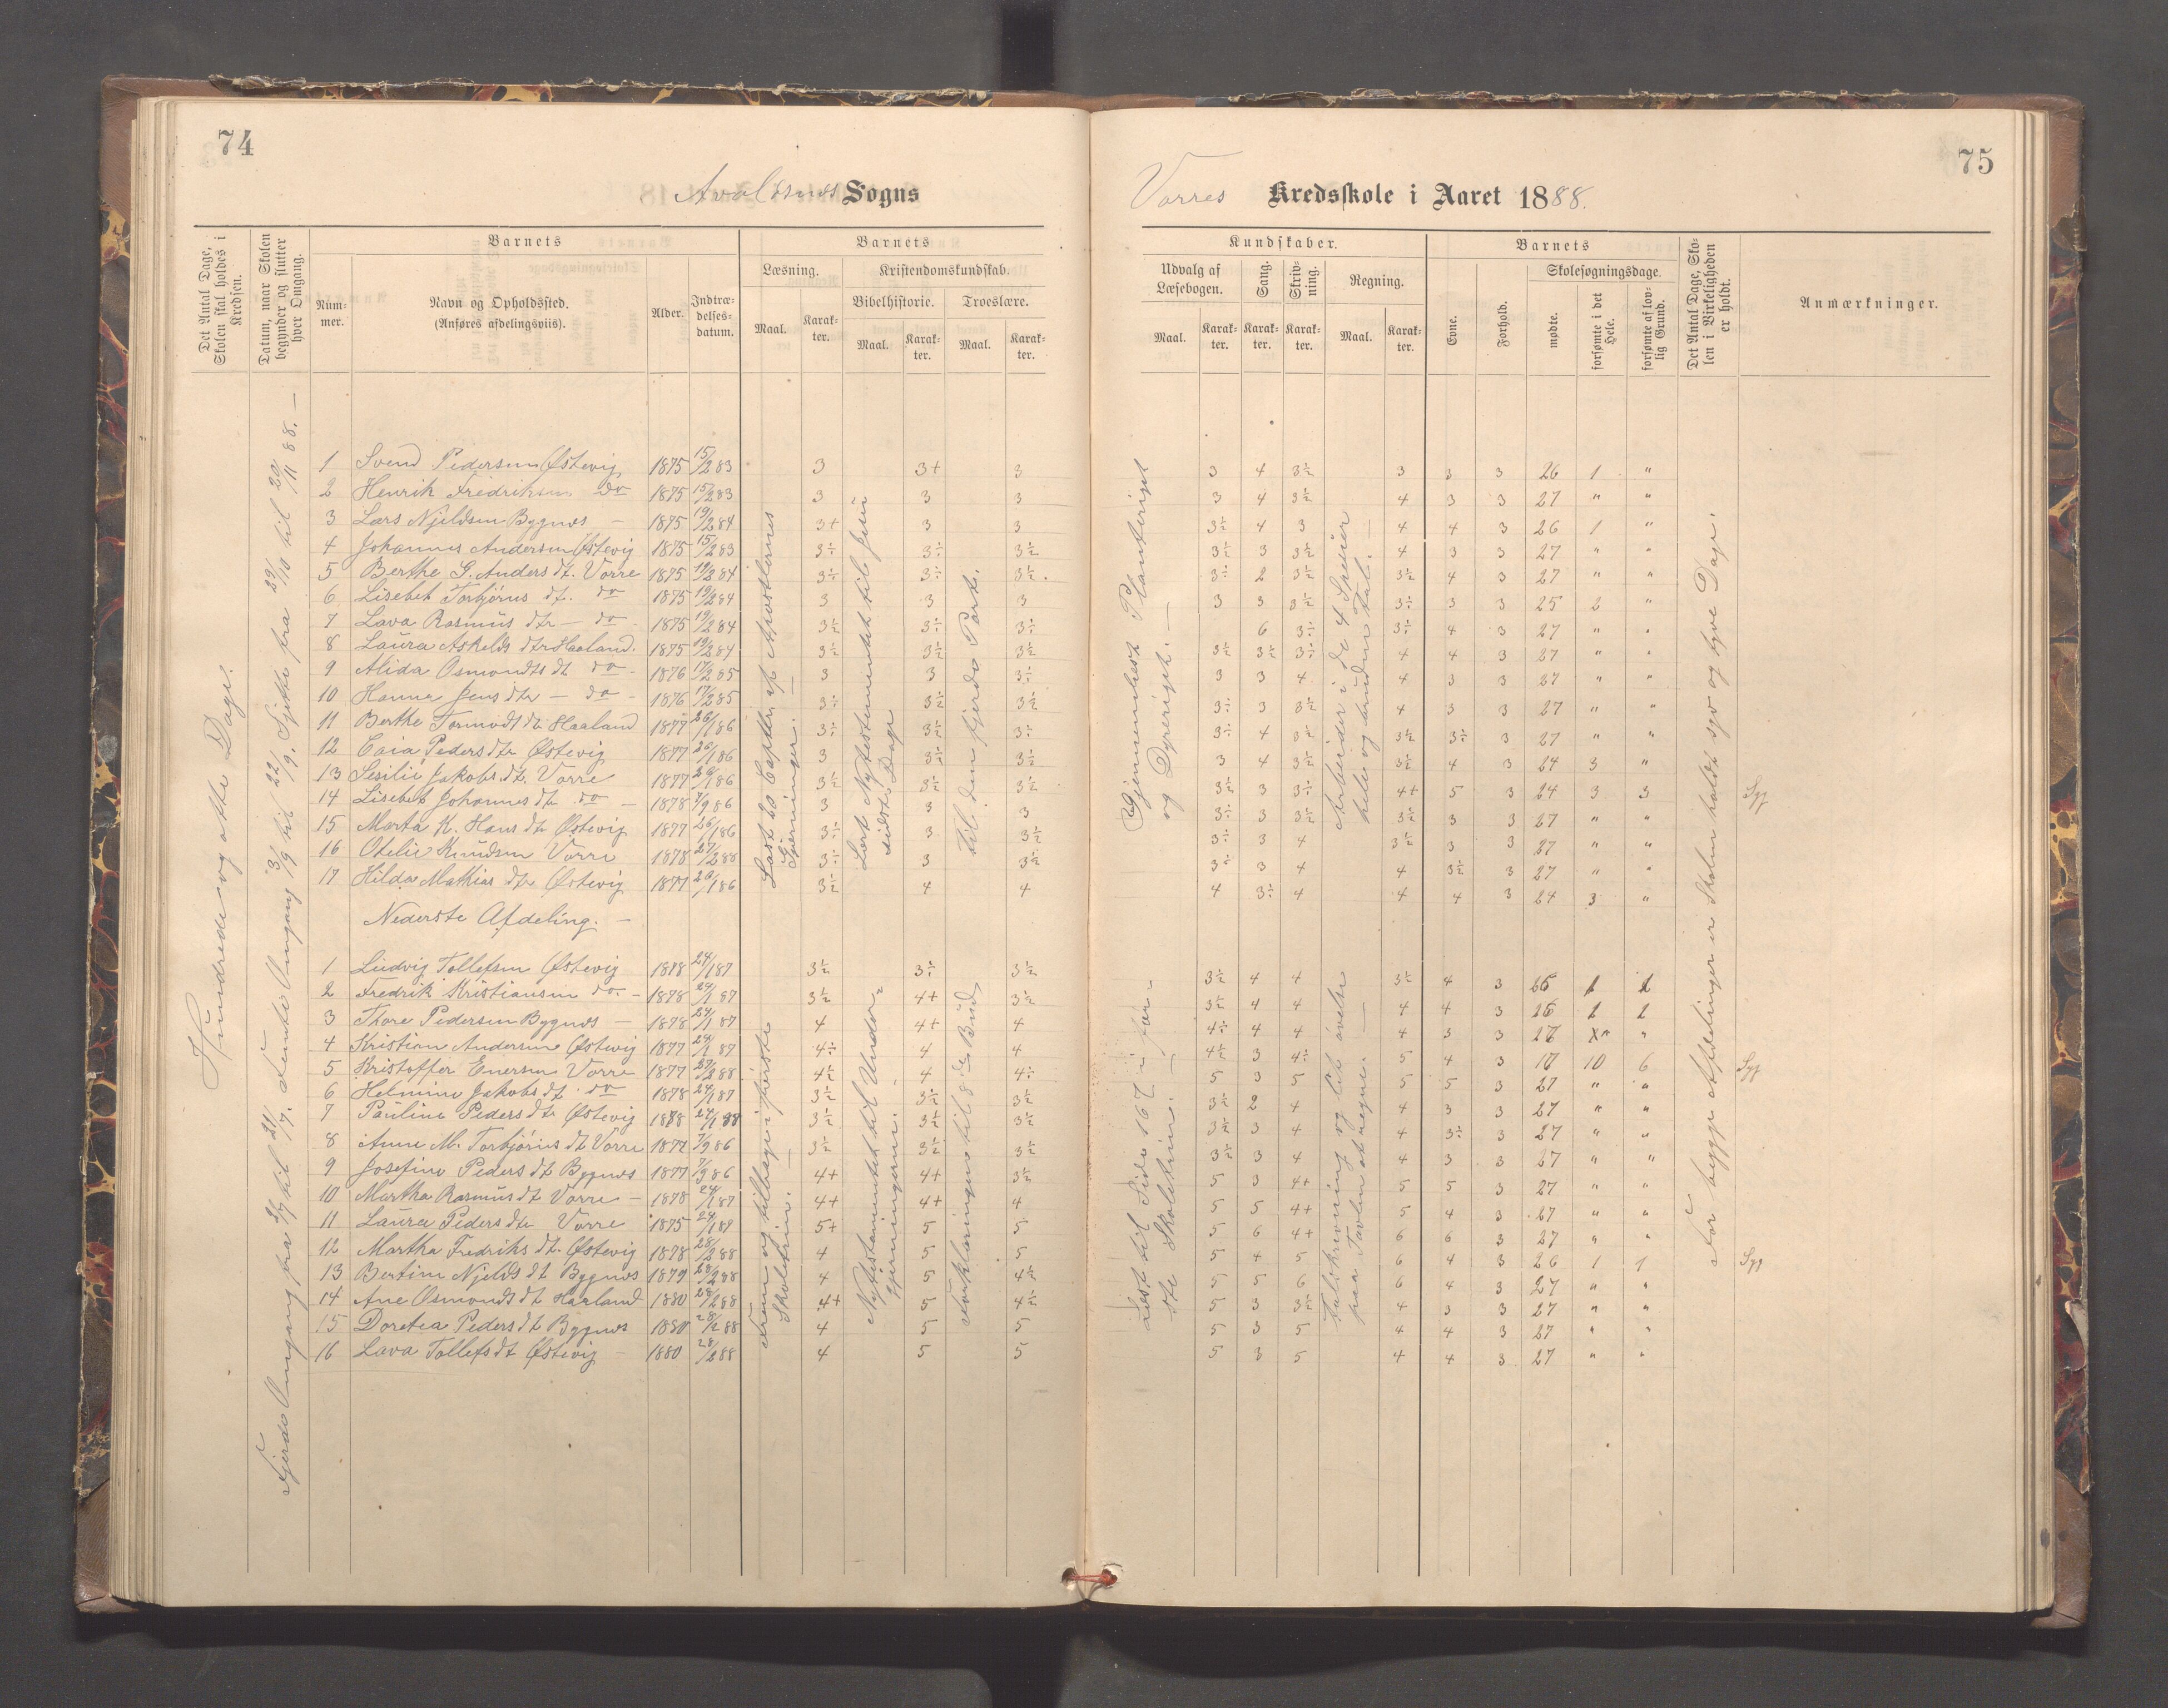 74
Avaldsnes Sogns
Det Antal Dage, Skolen skal holdes i Kredsen.
Datum, naar Skolen begynder og slutter hver Omgang.
Barnets
Num-mer.
Navn og Opholdssted.
(Anføres afdelingsviis).
Alder.
Indtræ-delses-datum.
Barnets
Læsning.
Maal.
Karak-ter.
Kristendomskundskab.
Bibelhistorie.
Maal.
Karak-ter.
Troeslære.
Maal.
Karak-ter.
Hundrede og otte Dage.
1 Svend Pedersen Østevig 1875 15/2 83 3 3+ 3
2 Henrik Fredriksen do 1875 15/2 83 3 3 3
3 Lars Njeldsen Bygnes – 1875 19/2 84 3+ 3 3
4 Johannes Andersen Østevig 1875 15/2 83 3÷ 3÷ 3½
5 Berthe G. Anders dt. Vorre 1875 19/2 84 3÷ 3÷ 3½
6 Lisebet Torbjørns dt. do 1875 19/2 84 3 3 3
7 Lava Rasmus dtr – do 1875 19/2 84 3½ 3÷ 3÷
8 Laura Askelds dtr Haaland 1875 19/2 84 3½ 3½ 3½
9 Alida Osmundts dt do 1876 17/2 85 3 3 3÷
10 Hanna Jens dtr – do 1876 17/2 85 3÷ 3½ 3½
11 Berthe Tormodt dt Haaland 1877 26/1 86 3÷ 3½ 3÷
12 Caia Peders dtr Østevig 1877 26/1 86 3 3½ 3½
13 Sesilie Jakobs dt. Vorre 1877 26/1 86 3½ 3÷ 3½
14 Lisebet Johannes dt do – 1878 7/9 86 3 3 3
15 Marta K. Hans dt Østevig 1877 26/1 86 3÷ 3 3½
16 Otelie Knudsen Vorre 1878 27/2 88 3÷ 3 3½
17 Hilda Mathias dtr Østevig 1877 26/1 86 3½ 4 4
Nederste Afdeling. –
1 Ludvig Tollefsen Østevig 1878 24/1 87 3½ 3½ 3½
2 Fredrik Kristiansen do. – 1878 24/1 87 3½ 4+ 3½
3 Thore Pedersen Bygnes – 1878 24/1 87 4 4+ 4
4 Kristian Andersen Østevig 1877 24/1 87 4÷ 4 4
5 Kristoffer Enersen Vorre 1877 27/2 88 4½ 4 4÷
6 Helmine Jakobs dt. do 1878 24/1 87 3½ 3½ 3½
7 Pauline Peders dtr Østevig 1878 24/1 88 3½ 3½ 3½
8 Anne M. Torbjørns dt Vorre 1877 7/9 86 3½ 3½ 3½
9 Josefine Peders dt Bygnes 1877 7/9 86 4+ 4+ 3½
10 Martha Rasmus dt Vorre – 1878 24/1 87 4+ 4+ 4
11 Laura Peders dtr Vorre 1875 24/1 87 5+ 5 5
12 Martha Fredriks dt. Østevig 1878 28/2 88 4 5 5
13 Bertine Njelds dt Bygnes 1879 28/2 88 4 5 4½
14 Ane Osmonds dt Haaland 1880 28/2 88 4+ 5 4½
15 Doretea Peders dt Bygnes 1880 28/2 88 4 5 5
16 Lava Tollefs dt Østevig – 1880 28/2 88 4 5 5
Læst 20 Capitler af Apostlernes Gjerninger. –
Til den fjerde Part.
Frem og tilbage i første Skoletrin. –
75
Vorres Kredsskole i Aaret 1888.
Kundskaber.
Udvalg af Læsebogen.
Maal.
Karak-ter.
Sang.
Karak-ter.
Skriv-ning.
Karak-ter.
Regning.
Maal.
Karak-ter.
Barnets
Evne.
Forhold.
Skolesøgningsdage.
mødte.
forsømte i det Hele.
forsømte af lov-lig Grund.
Det Antal Dage, Sko-len i Virkeligheden er holdt.
Anmærkninger.
3 4 3½ 3 3 3 26 1 "
3 4 3½ 4 3 3 27 " "
3½ 4 3 4 4 3 26 1 "
3½ 3 3½ 4 3 3 27 " "
3÷ 2 3½ 3½ 4 3 27 " "
3 3 3½ 3÷ 3 3 25 2 "
6 3÷ 3÷ 4 3 27 " "
3½ 3½ 3÷ 4 4 3 27 " "
3 3 4 4 3 3 27 " "
3÷ 3 3½ 4 3 3 27 " "
3÷ 4 3½ 3½ 3÷ 3 27 " "
3 4 3½ 3½ 4 3 24 3 "
3½ 3 3÷ 4+ 5 3 24 3 3 Syg
3÷ 3 3½ 3½ 3 3 27 " "
3÷ 3 4 3½ 3 3 27 " "
3÷ 3 4 4 3½ 3 27 " "
4 3÷ 4 4 4 3 24 3 "
3½ 4 4 3½ 4 3 26 1 1
3½ 4 4 4 4 3 26 1 1
4÷ 4 4 4 3 3 27 " "
4½ 3 4÷ 5 4 3 17 10 6 Syg
5 3 5 5 5 3 27 " "
3½ 2 4 4 3 3 27 " "
3½ 3 4 4 3÷ 3 27 " "
3½ 3 4 4 3 3 27 " "
5 3 4+ 5 5 3 27 " "
5 5 4+ 5 4 3 27 " "
5 6 4+ 6 6 3 27 " "
5 4 5 6 4 3 26 1 1 Syg
5 5 6 6 4 3 27 " "
5 3 3½ 4 3 3 27 " "
5 3 5 4 4 3 27 " "
5 3 5 4 4 3 27 " "
Gjennemlæst Planteriget og Dyreriget. –
Arbeider i de 4 Specier hele og brudne Tal. –
Læst til Side 167 i første Skoletrin. –
For begge Afdelinger er Skolen holdt syv og tyve Dage.